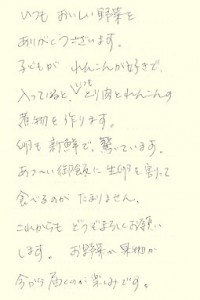 いつも おいしい野菜を
ありがとうございます。
子どもが れんこんが好きで、
入っていると、いつもとり肉とれんこんの
煮物を作ります。
卵も新鮮で、驚いています。
あつ〜い御飯に生卵を割って
食べるのが たまりません。
これからも どうぞよろしくお願い
します。 お野菜や果物が
今から届くのが楽しみです。